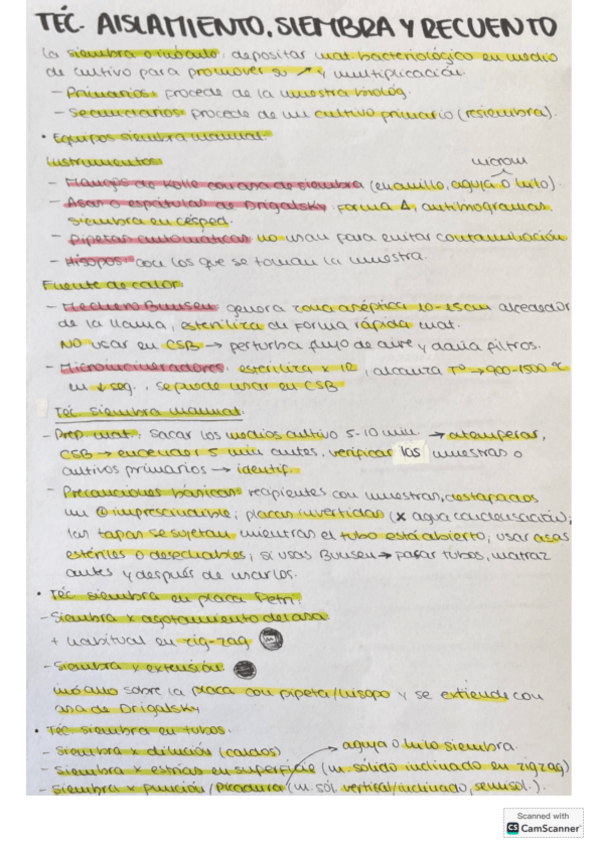 TÉC. AISLAMIENTO, SIEMBRA Y RECUENTO
La siembra o inóculo: depositar mat. bacteriológico en medio
de cultivo para promover su ↗ y multiplicación.
- Primarios: procede de la muestra biológ.
- Secundarios: procede de un cultivo primario (resiembra).
• Equipos siembra manual.
Instrumentos:
microm
- Mangos de Kolle con asa de siembra (en anillo, aguja o hilo).
- Asas o espátulas de Drigalsky: forma Δ, antibiogramas,
siembra en césped.
- Pipetas automáticas: no usan para evitar contaminación
- Hisopos: con los que se toman la muestra.
Fuente de calor
- Mechero Bunsen: genera zona aséptica 10-15cm alrededor
de la llama, esteriliza de forma rápida mat.
NO usar en CSB → perturba flujo de aire y daña filtros.
- Microincineradores: esteriliza x IR, alcanza Tº → 900-1500 ºC
en ↓ seg., se puede usar en CSB
Téc. siembra manual.
- Prep. mat: sacar los medios cultivo 5-10 min → atemperar,
CSB → encender 5 min antes, verificar las muestras o
cultivos primarios → identif.
- Precauciones básicas: recipientes con muestras, destapados
imprescindible; placas invertidas (x agua condensación);
las tapas se sujetan mientras el tubo está abierto; usar asas
estériles o desechables; si usas Bunsen → pasar tubos, matraz
antes y después de usarlos.
• Téc. siembra en placa Petri:
- Siembra x agotamiento del asa
+ habitual en zig-zag
- Siembra x extensión
inóculo sobre la placa con pipeta/hisopo y se extiende con
asa de Drigalsky
• Téc. siembra en tubos.
- Siembra x dilución (caldos) → aguja o hilo siembra.
- Siembra x estrías en superficie (m. sólido inclinado en zigzag)
- Siembra x punción / picadura (m. sól. vertical/inclinado, semisol.).
Scanned with
CS CamScanner